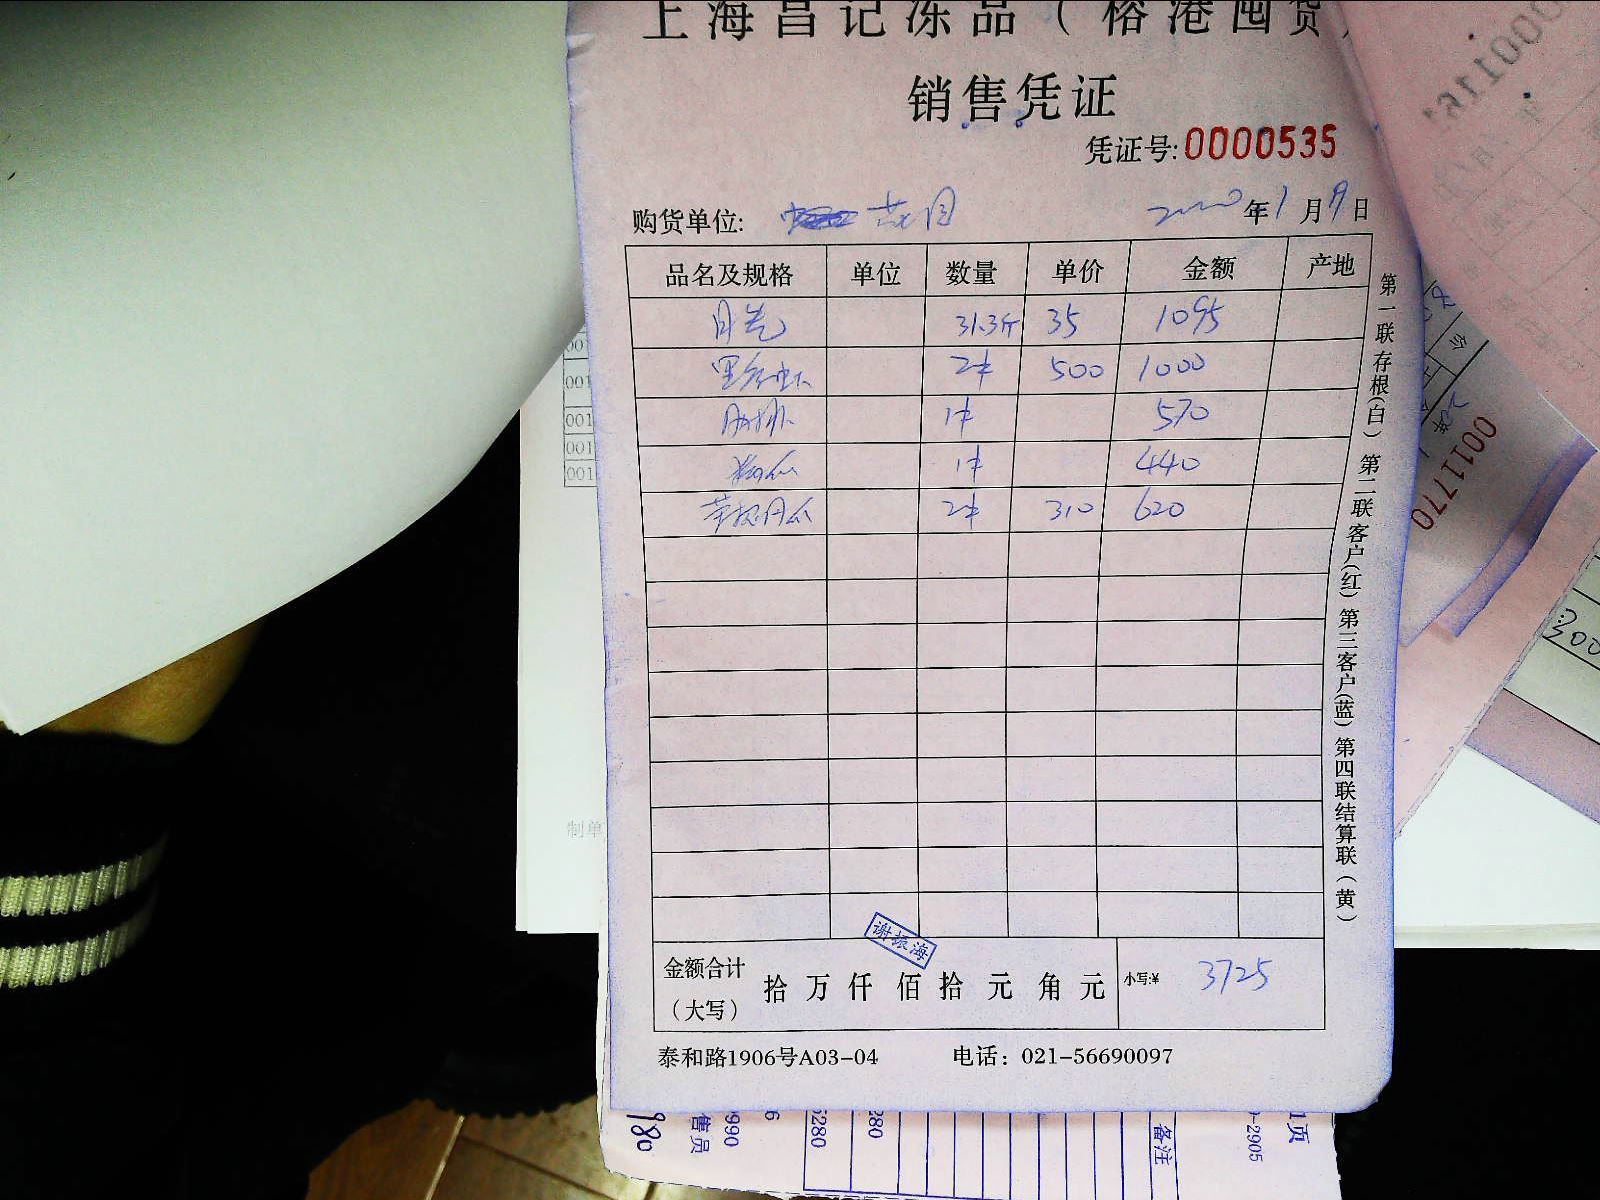 上海昌记冻品（榕港囤货）
销售凭证
凭证号:0000535
购货单位: 2020年1月9日
品名及规格 单位 数量 单价 金额 产地
31.3斤 35 1095
2件 500 1000
肋排 1件 570
1件 440
2件 310 620
金额合计（大写） 拾 万 仟 佰 拾 元 角 元 小写:¥ 3725
谢振海
泰和路1906号A03-04 电话：021-56690097
第一联存根(白) 第二联客户(红) 第三客户(蓝) 第四联结算联(黄)
0011770
300
制单
980
售员
990
5280
280
备注
-2905
1页
001
001
001
001
001